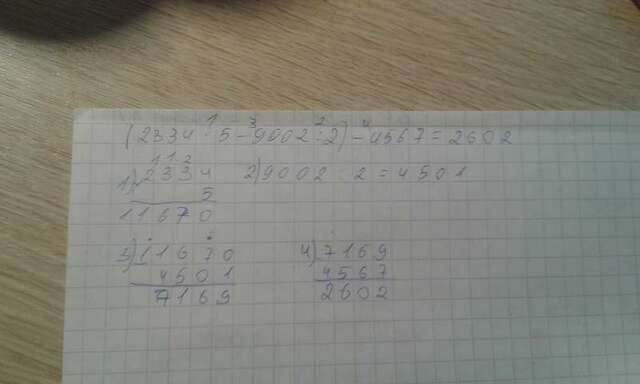 (2334 · 5 - 9002 : 2) - 4567 = 2602
1 3 2 4
1 1 2
1) 2334
5
11670
2) 9002 : 2 = 4501
3) 11670
4501
7169
4) 7169
4567
2602